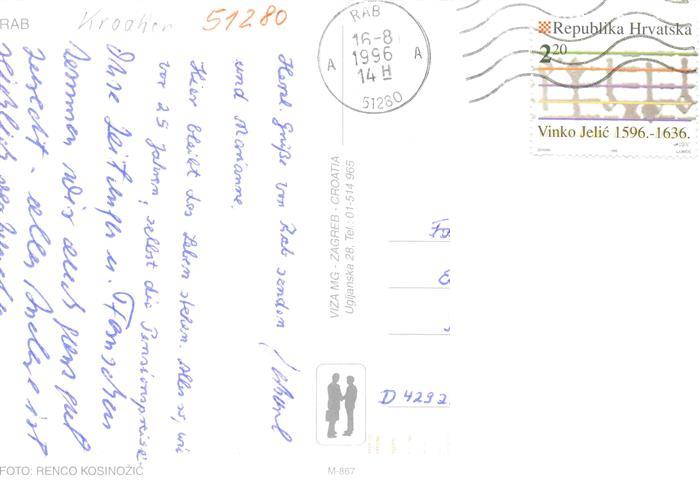 RAB
Kroatien
51280
RAB
16-8
1996
14 H
A
A
51280
Republika Hrvatska
2 20
Vinko Jelić 1596.-1636.
Herzl. Grüße von Rab senden
und Marianne.
Hier bleibt das Leben stehen. Alles so, wie
vor 25 Jahren, selbst die Pensionspreise.
Ihre Zeitungen u. Fernsehen
kommen wir auch ganz gut
zurecht - alles Andere ist
VIZA MG - ZAGREB - CROATIA
Ugljanska 28, Tel.: 01-514 965
D 4292
FOTO: RENCO KOSINOŽIĆ
M-867